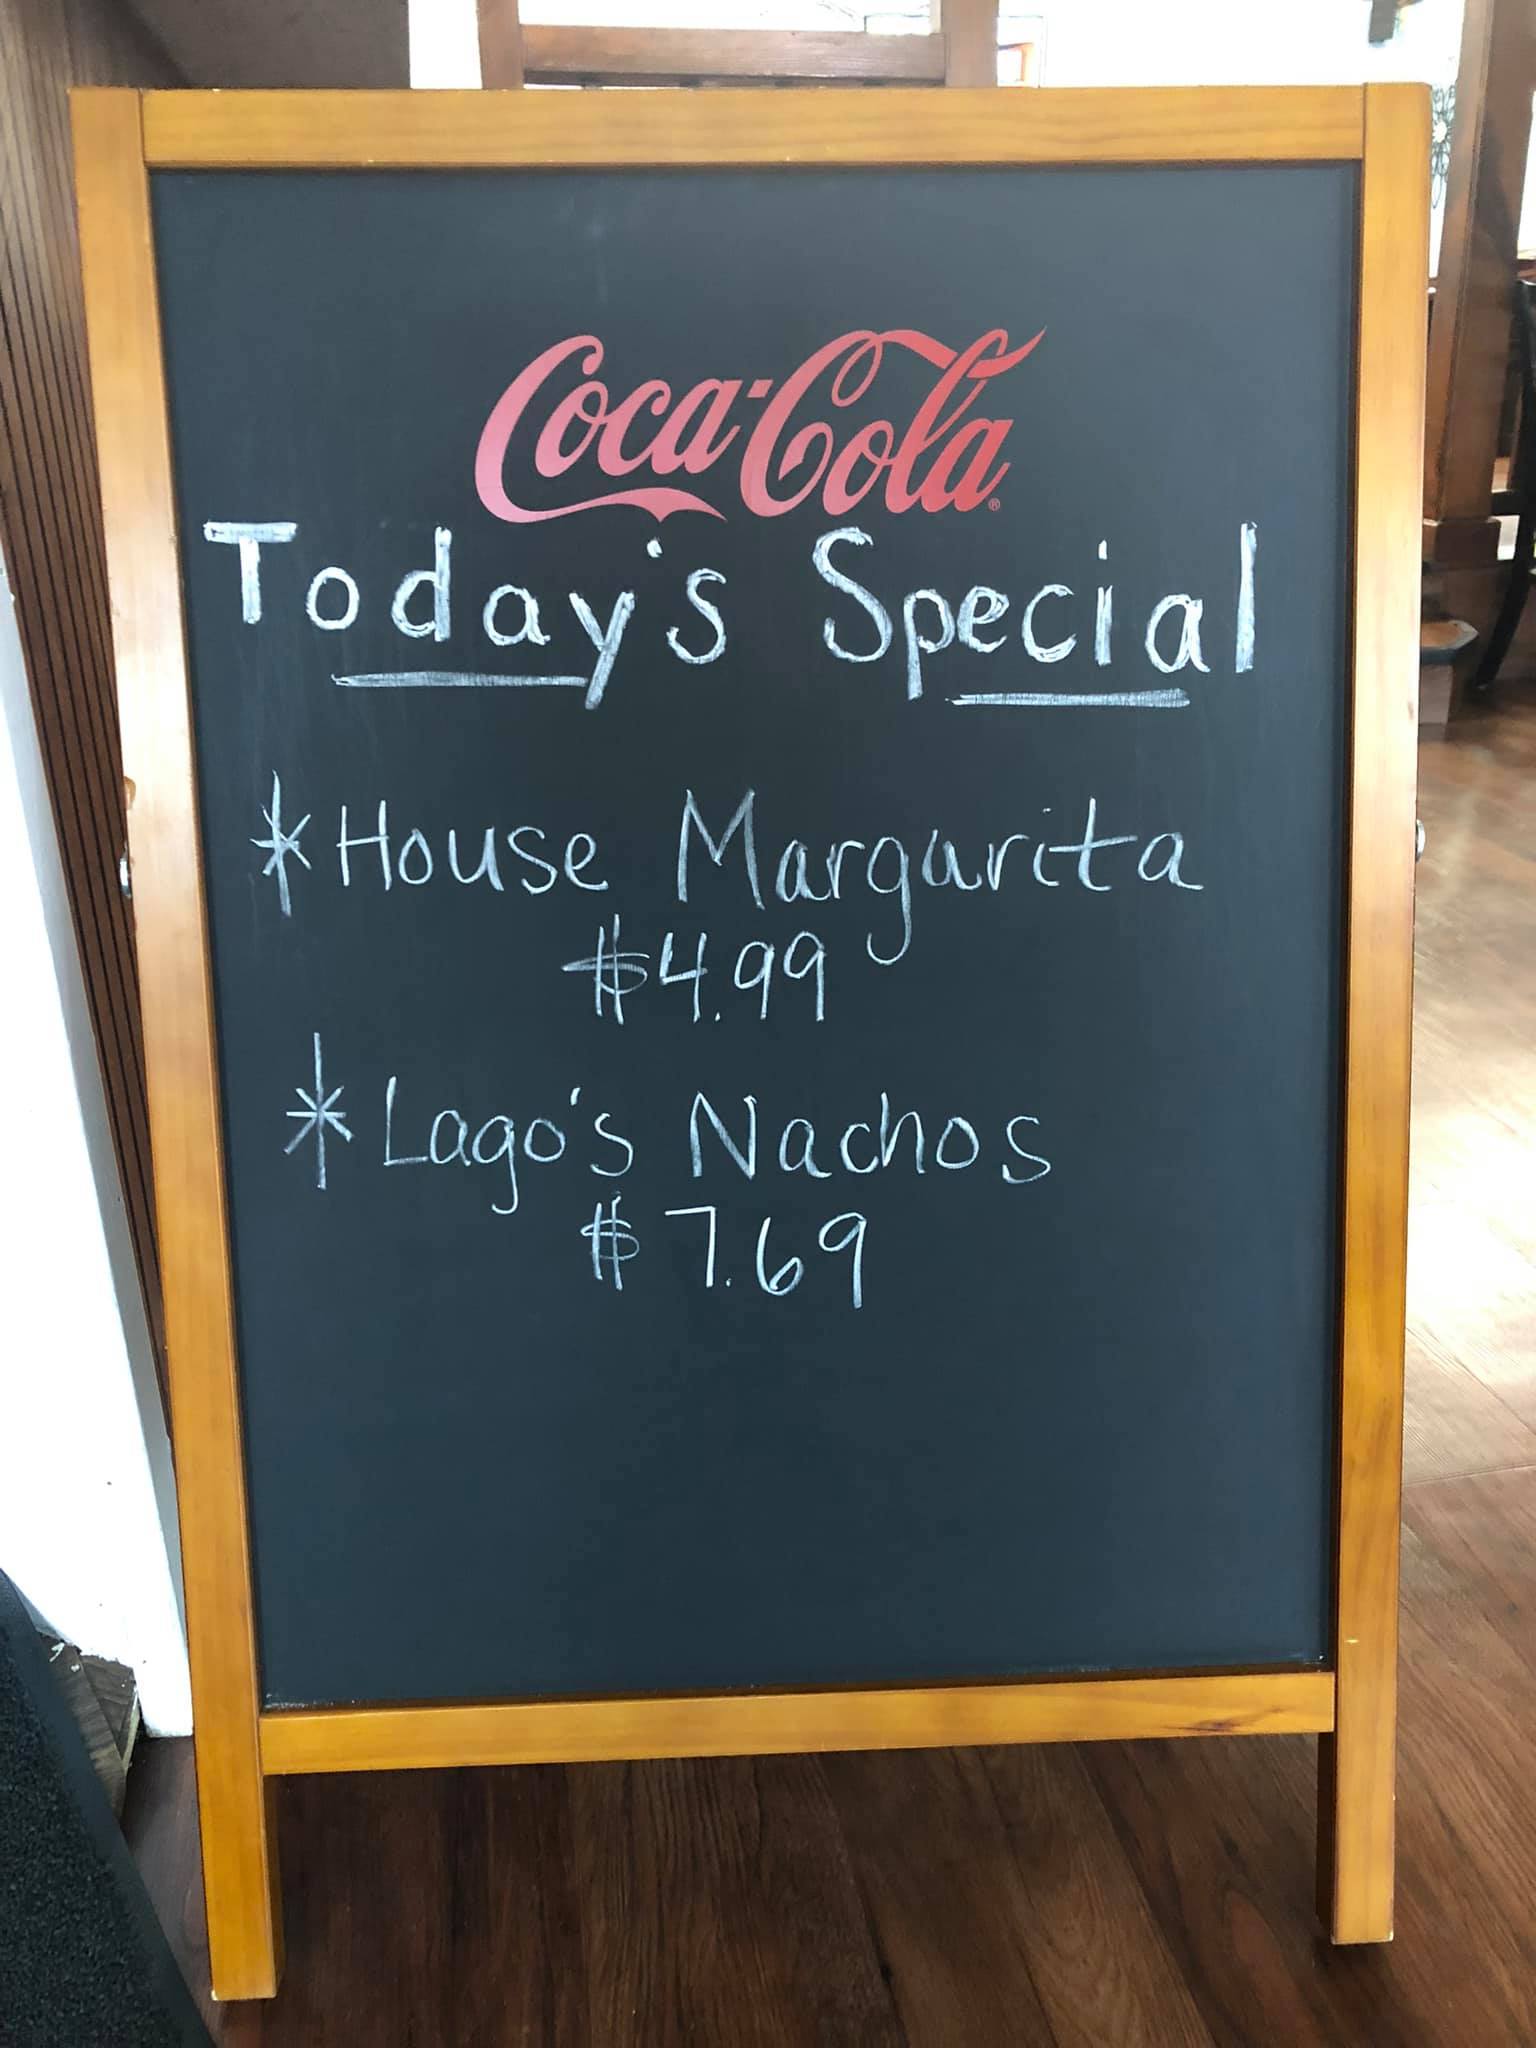 Coca-Cola®
Today's Special
*House Margarita
$4.99
*Lago's Nachos
$7.69